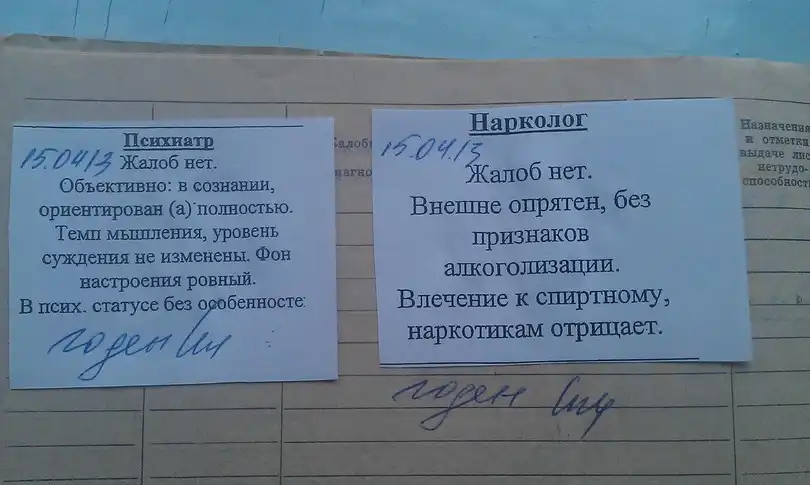 Психиатр
15.0413 Жалоб нет.
Объективно: в сознании,
ориентирован (а) полностью.
Темп мышления, уровень
суждения не изменены. Фон
настроения ровный.
В псих. статусе без особенносте:
годен
Нарколог
15.04.13
Жалоб нет.
Внешне опрятен, без
признаков
алкоголизации.
Влечение к спиртному,
наркотикам отрицает.
годен
Назначения
и отметки
выдаче ли
нетрудо-
способност